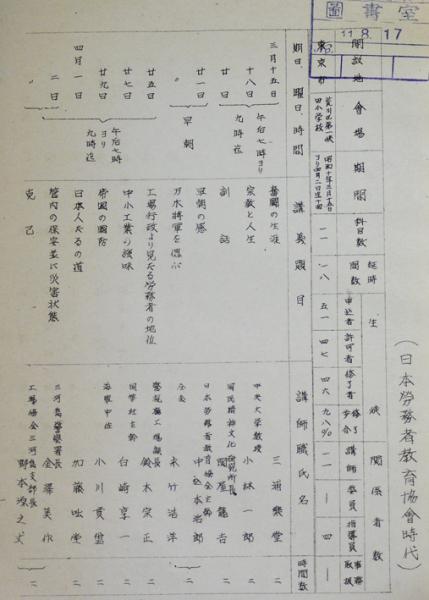 圖書室
11.8.17
(日本労務者教育協會時代)
開設地 會場 期間 科目数 延時間数 生 績 関係者数
申込者 許可者 修了者 修了歩合 講師 委員 指導員 事務取扱
東京市
荒川区第一峡田小学校
昭和十年三月十五日ヨリ四月二日迄十回
一一 一八 五一 四七 四六 九八% 一一 一 四 一
期日、曜日、時間 講義題目 講師職氏名 時間数
三月十五日 午后七時ヨリ九時迄 奮闘の生涯 三浦樂堂 二
十八日 宗教と人生 中央大学教授 小林一郎 二
廿日 訓話 国民精神文化研究所長 関屋龍吉 二
廿一日 早朝 早朝の感 日本労務者教育協会主幹 中込本治郎
〃 乃木將軍を偲ぶ 会長 末竹浩洋 二
廿五日 午后七時ヨリ九時迄 工場行政より見たる労務者の地位 警視廳工場課長 鈴木栄正 二
廿七日 中小工業の機味 国學社主幹 白崎享一 二
廿九日 帝国の国防 海軍中佐 小川貫爾 二
四月一日 日本人たるの道 加藤咄堂 二
二日 管内の保安並に災害状態 三河島警察署長 金澤美作
〃 克己 工場協会三河島支部長 野本源之丈 二